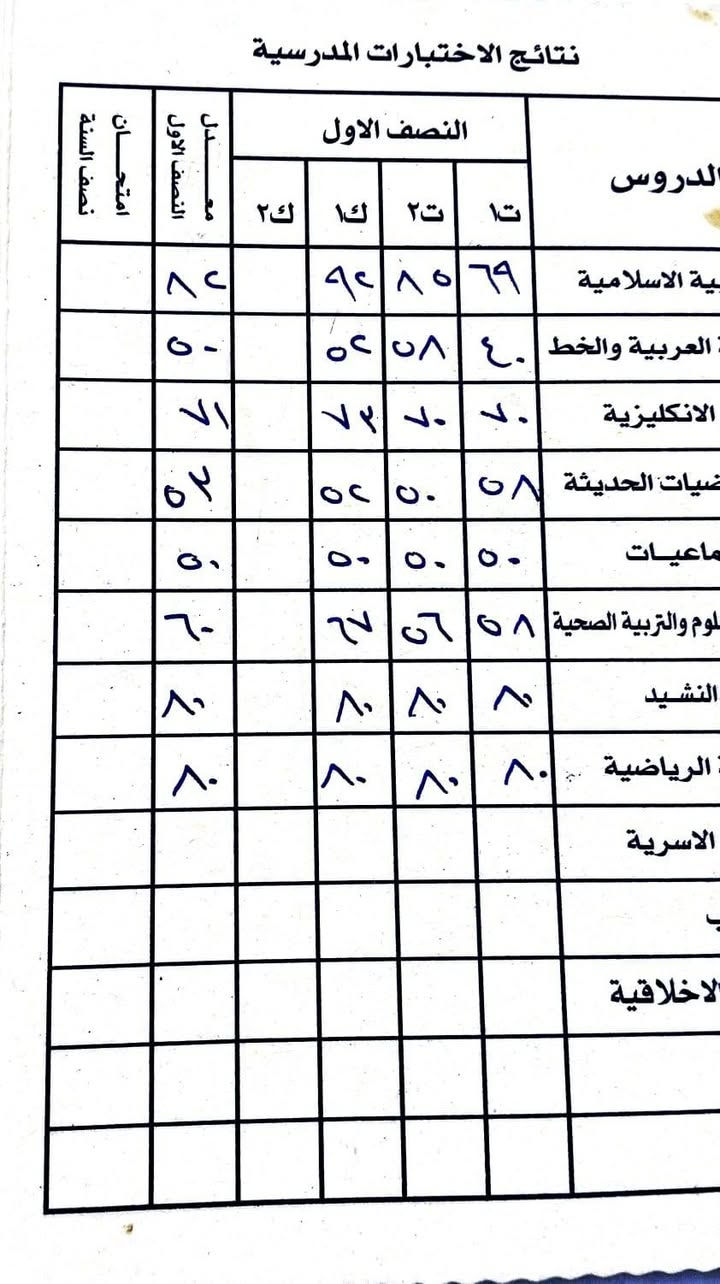 نتائج الاختبارات المدرسية
لدروس النصف الاول معدل النصف الاول امتحان نصف السنة
ت١ ت٢ ك١ ك٢
ية الاسلامية ٦٩ ٨٥ ٩٢ ٨٢
العربية والخط ٤٠ ٥٨ ٥٢ ٥٠
الانكليزية ٧٠ ٧٠ ٧٣ ٧١
ضيات الحديثة ٥٨ ٥٠ ٥٢ ٥٣
ماعيات ٥٠ ٥٠ ٥٠ ٥٠
لوم والتربية الصحية ٥٨ ٥٦ ٦٧ ٦٠
النشيد ٨٠ ٨٠ ٨٠ ٨٠
الرياضية ٨٠ ٨٠ ٨٠ ٨٠
الاسرية
الاخلاقية